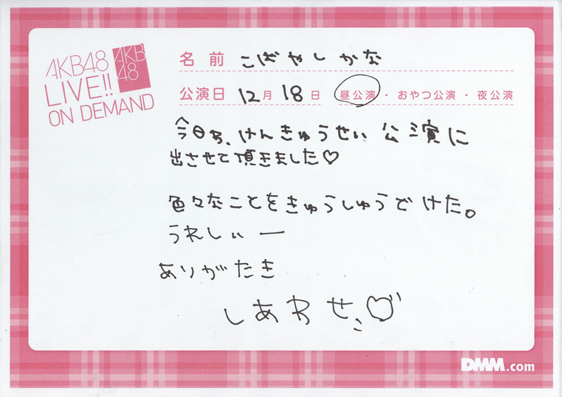 AKB48
LIVE!!
ON DEMAND
AKB
48
名前 こばやしかな
公演日 12月18日 昼公演・おやつ公演・夜公演
今日も、けんきゅうせい公演に
出させて頂きました♡
色々なことをきゅうしゅうでけた。
うれしぃー
ありがたき
しあわせ♡
DMM.com